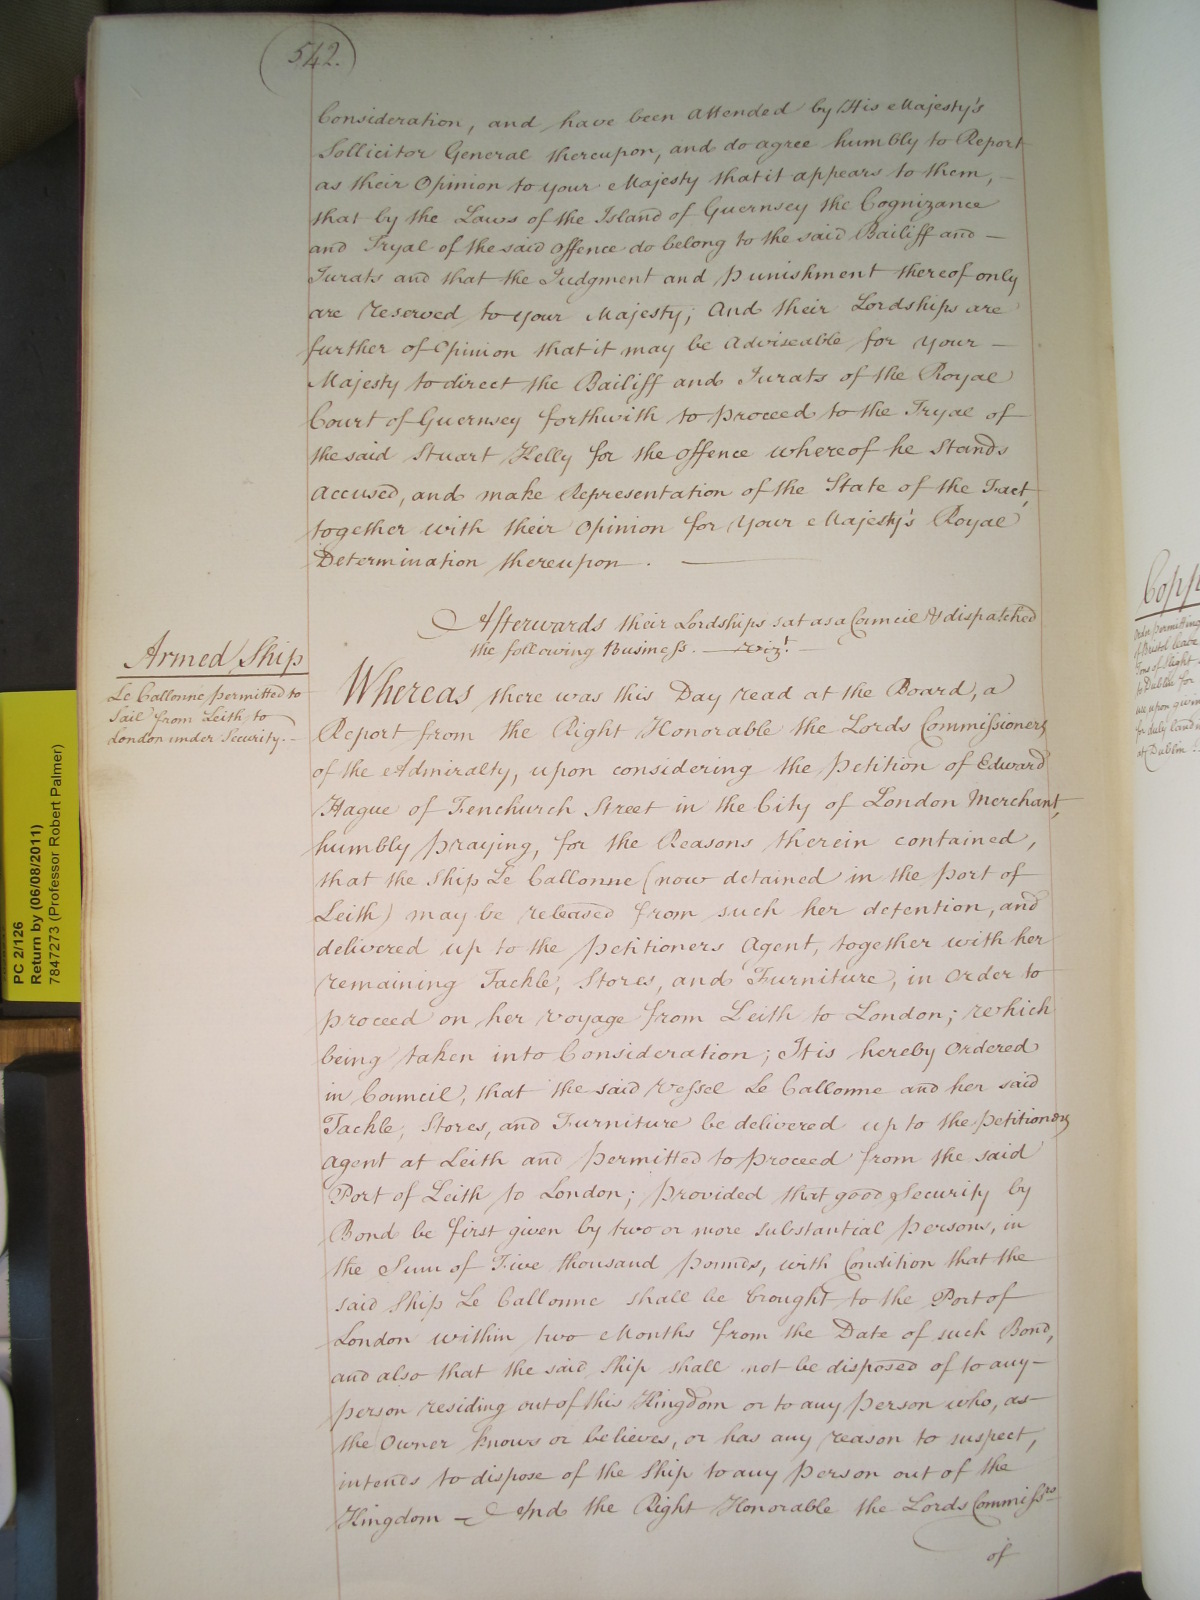 542.
Consideration, and have been Attended by His Majesty's
Sollicitor General thereupon, and do agree humbly to Report
as their Opinion to your Majesty that it appears to them, –
that by the Laws of the Island of Guernsey the Cognizance
and Tryal of the said Offence do belong to the said Bailiff and –
Jurats and that the Judgment and Punishment thereof only
are reserved to your Majesty; And their Lordships are
further of Opinion that it may be Adviseable for Your –
Majesty to direct the Bailiff and Jurats of the Royal
Court of Guernsey forthwith to proceed to the Tryal of
the said Stuart Kelly for the Offence whereof he Stands
Accused, and make Representation of the State of the Fact,
together with their Opinion for Your Majesty's Royal
Determination thereupon. —
Afterwards their Lordships sat as a Council & dispatched
the following Business. — vizt.
Armed Ship
Le Callonne permitted to
Sail from Leith to
London under Security. –
Whereas there was this Day read at the Board, a
Report from the Right Honorable the Lords Commissioners
of the Admiralty, upon considering the Petition of Edward
Hague of Fenchurch Street in the City of London Merchant,
humbly praying, for the Reasons therein contained,
that the Ship Le Callonne (now detained in the Port of
Leith) may be released from such her detention, and
delivered up to the Petitioners Agent, together with her
remaining Tackle, Stores, and Furniture, in Order to
proceed on her voyage from Leith to London; which
being taken into Consideration; It is hereby Ordered
in Council, that the said Vessel Le Callonne and her said
Tackle, Stores, and Furniture be delivered up to the Petitioners
Agent at Leith and permitted to proceed from the said
Port of Leith to London; provided that good Security by
Bond be first given by two or more substantial persons, in
the Sum of Five thousand Pounds, with Condition that the
said Ship Le Callonne shall be brought to the Port of
London within two Months from the Date of such Bond,
and also that the said Ship shall not be disposed of to any –
person residing out of this Kingdom or to any Person who, as
the Owner knows or believes, or has any reason to suspect,
intends to dispose of the Ship to any Person out of the
Kingdom – And the Right Honorable the Lords Commissrs
of
PC 2/126
Return by (06/08/2011)
7847273 (Professor Robert Palmer)
Copp
Order permitting
of Bristol leave
Tons of Slight
to Dublin for
at Dublin.